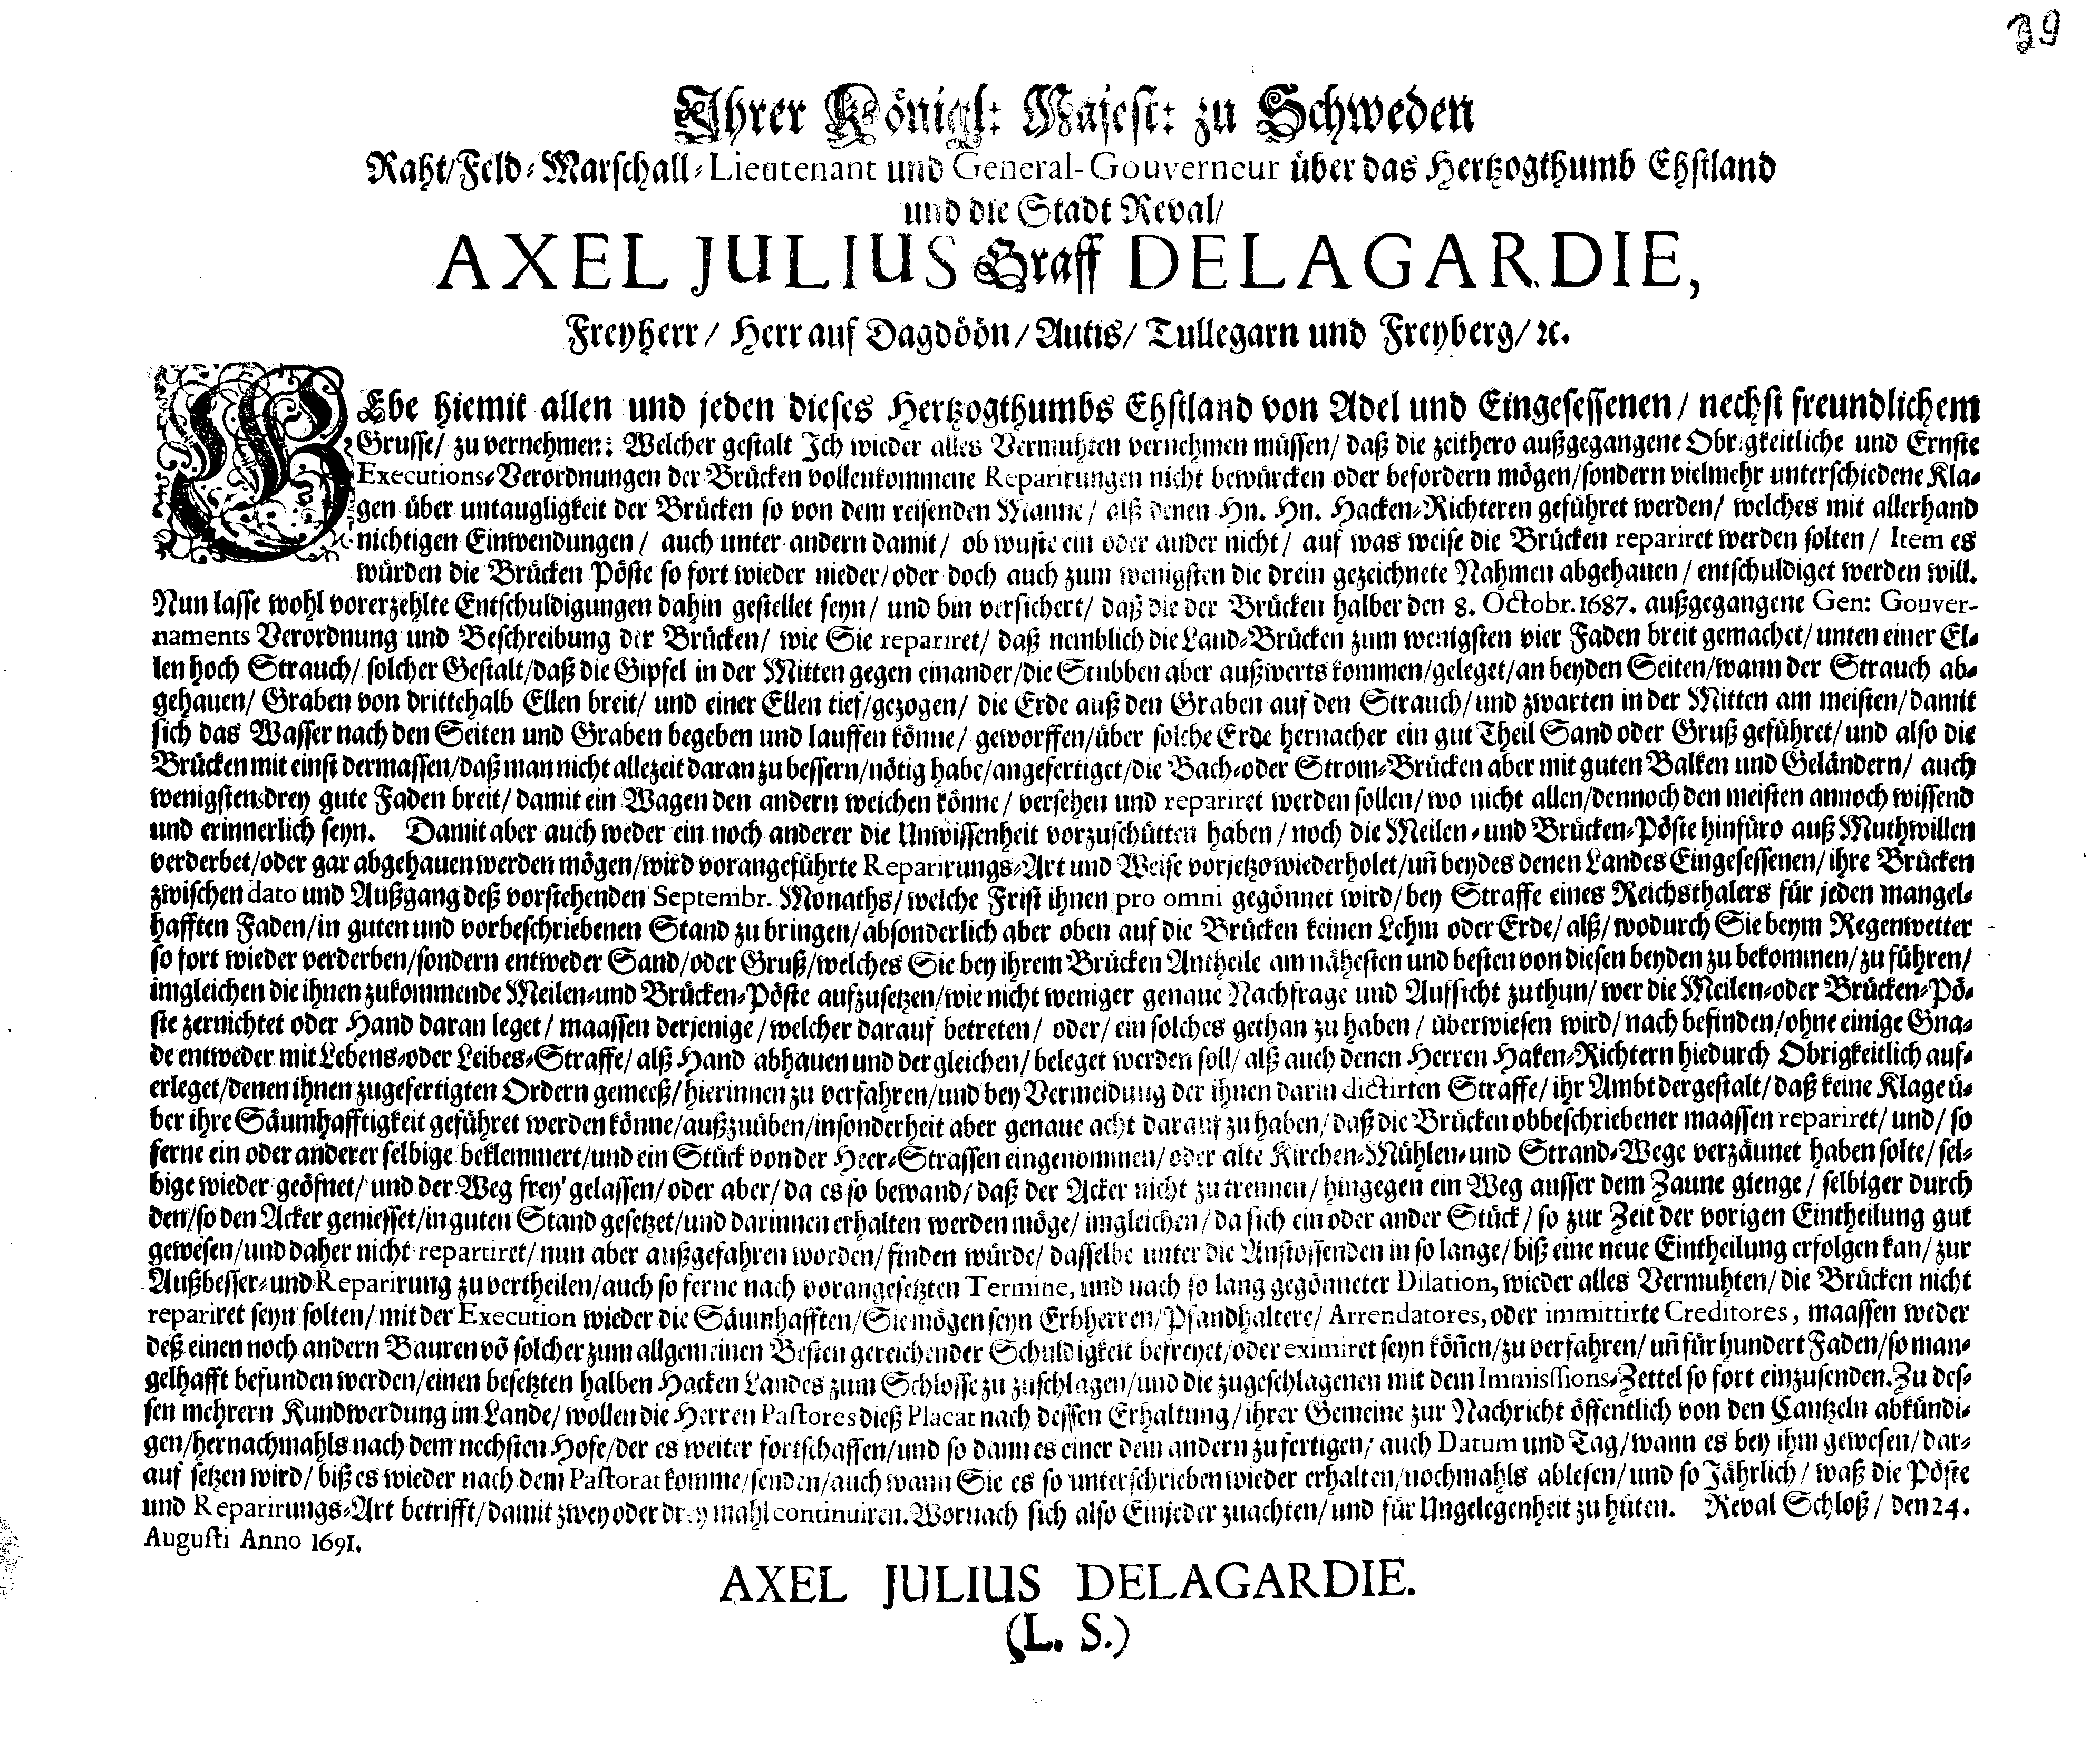 39
Ihrer Königl: Majest: zu Schweden
Raht/Feld-Marschall-Lieutenant und General-Gouverneur über das Hertzogthumb Ehstland
und die Stadt Reval/
AXEL JULIUS Graff DELAGARDIE,
Freyherr/ Herr auf Dagdöön/ Autis/ Tullegarn und Freyberg/ ꝛc.
GEbe hiemit allen und jeden dieses Hertzogthumbs Ehstland von Adel und Eingesessenen/ nechst freundlichem
Grusse/ zu vernehmen: Welcher gestalt Ich wieder alles Vermuhten vernehmen müssen/ daß die zeithero außgegangene Obrigkeitliche und Ernste
Executions-Verordnungen der Brücken vollenkommene Reparirungen nicht bewürcken oder befordern mögen/sondern vielmehr unterschiedene Kla-
gen über untaugligkeit der Brücken so von dem reisenden Manne/ alß denen Hn. Hn. Hacken-Richteren geführet werden/ welches mit allerhand
nichtigen Einwendungen/ auch unter andern damit/ ob wuste ein oder ander nicht/ auf was weise die Brücken repariret werden solten/ Item es
würden die Brücken Pöste so fort wieder nieder/oder doch auch zum wenigsten die drein gezeichnete Nahmen abgehauen/ entschuldiget werden will.
Nun lasse wohl vorerzehlte Entschuldigungen dahin gestellet seyn/ und bin versichert/ daß die der Brücken halber den 8. Octobr. 1687. außgegangene Gen: Gouver-
naments Verordnung und Beschreibung der Brücken/ wie Sie repariret/ daß nemblich die Land-Brücken zum wenigsten vier Faden breit gemachet/ unten einer El-
len hoch Strauch/ solcher Gestalt/daß die Gipfel in der Mitten gegen einander/die Stubben aber außwerts kommen/geleget/an beyden Seiten/wann der Strauch ab-
gehauen/ Graben von drittehalb Ellen breit/ und einer Ellen tief/gezogen/ die Erde auß den Graben auf den Strauch/und zwarten in der Mitten am meisten/damit
sich das Wasser nach den Seiten und Graben begeben und lauffen könne/ geworffen/über solche Erde hernacher ein gut Theil Sand oder Gruß geführet/und also die
Brücken mit einst dermassen/daß man nicht allezeit daran zu bessern/nötig habe/angefertiget/die Bach-oder Strom-Brücken aber mit guten Balken und Geländern/ auch
wenigstens drey gute Faden breit/ damit ein Wagen den andern weichen könne/ versehen und repariret werden sollen/wo nicht allen/dennoch den meisten annoch wissend
und erinnerlich seyn. Damit aber auch weder ein noch anderer die Unwissenheit vorzuschütten haben/noch die Meilen-und Brücken-Pöste hinfüro auß Muthwillen
verderbet/oder gar abgehauen werden mögen/wird vorangeführte Reparirungs-Art und Weise vorjetzo wiederholet/uñ beydes denen Landes Eingesessenen/ihre Brücken
zwischen dato und Außgang deß vorstehenden Septembr. Monaths/welche Frist ihnen pro omni gegönnet wird/bey Straffe eines Reichsthalers für jeden mangel-
hafften Faden/in guten und vorbeschriebenen Stand zu bringen/absonderlich aber oben auf die Brücken keinen Lehm oder Erde/ alß/wodurch Sie beym Regenwetter
so fort wieder verderben/sondern entweder Sand/oder Gruß/welches Sie bey ihrem Brücken Antheile am nähesten und besten von diesen beyden zu bekommen/zu führen/
imgleichen die ihnen zukommende Meilen-und Brücken-Pöste aufzusetzen/wie nicht weniger genaue Nachfrage und Aufsicht zu thun/wer die Meilen-oder Brücken-Pö-
ste zernichtet oder Hand daran leget/ maassen derjenige/welcher darauf betreten/ oder/ein solches gethan zu haben/ überwiesen wird/nach befinden/ohne einige Gna-
de entweder mit Lebens-oder Leibes-Straffe/ alß Hand abhauen und der gleichen/beleget werden soll/ alß auch denen Herren Haken-Richtern hiedurch Obrigkeitlich auf-
erleget/denen ihnen zugefertigten Ordern gemeeß/hierinnen zu verfahren/und bey Vermeidung der ihnen darin dictirten Straffe/ihr Ambt dergestalt/daß keine Klage ü-
ber ihre Säumhafftigkeit geführet werden könne/außzuüben/insonderheit aber genaue acht darauf zu haben/daß die Brücken obbeschriebener maassen repariret/und/so
ferne ein oder anderer selbige beklemmert/und ein Stück von der Heer-Strassen eingenommen/oder alte Kirchen-Mühlen-und Strand-Wege verzäunet haben solte/sel-
bige wieder geöfnet/und der Weg frey gelassen/oder aber/da es so bewand/daß der Acker nicht zu trennen/hingegen ein Weg ausser dem Zaune gienge/selbiger durch
den/so den Acker geniesset/in guten Stand gesetzet/und darinnen erhalten werden möge/imgleichen/da sich ein oder ander Stück/so zur Zeit der vorigen Eintheilung gut
gewesen/und daher nicht repartiret/nun aber außgefahren worden/finden würde/dasselbe unter die Anstossenden in so lange/biß eine neue Eintheilung erfolgen kan/zur
Außbesser-und Reparirung zu vertheilen/auch so ferne nach vorangesetzten Termine, und nach so lang gegönneter Dilation, wieder alles Vermuhten/die Brücken nicht
repariret seyn solten/mit der Execution wieder die Säumhafften/Sie mögen seyn Erbherren/Pfandhaltere/ Arrendatores, oder immittirte Creditores, maassen weder
deß einen noch andern Bauren võ solcher zum allgemeinen Besten gereichender Schuldigkeit befreyet/oder eximiret seyn köñen/zu verfahren/ uñ für hundert Faden/so man-
gelhafft befunden werden/einen besetzten halben Hacken Landes zum Schlosse zu zuschlagen/und die zugeschlagenen mit dem Immissions-Zettel so fort einzusenden. Zu des-
sen mehrern Kundwerdung im Lande/ wollen die Herren Pastores dieß Placat nach dessen Erhaltung/ihrer Gemeine zur Nachricht öffentlich von den Cantzeln abkündi-
gen/hernachmahls nach dem nechsten Hofe/der es weiter fortschaffen/und so dann es einer dem andern zu fertigen/ auch Datum und Tag/wann es bey ihm gewesen/dar-
auf setzen wird/biß es wieder nach dem Pastorat komme/senden/auch wann Sie es so unterschrieben wieder erhalten/nochmahls ablesen/und so Jährlich/waß die Pöste
und Reparirungs-Art betrifft/damit zwey oder drey mahl continuiren. Wornach sich also Einjeder zuachten/und für Ungelegenheit zu hüten. Reval Schloß/ den 24.
Augusti Anno 1691.
AXEL JULIUS DELAGARDIE.
(L. S.)